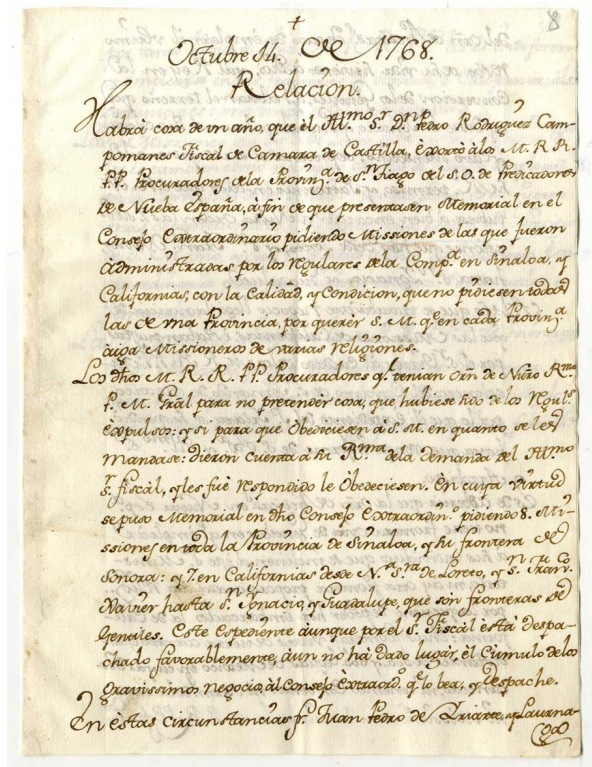 8
Octubre 14. de 1768.
Relacion.
Habrà cosa de un año, que èl Illmo. Sr. Dn. Pedro Rodriguez Cam-
pomanes Fiscal de Camara de Castilla, exortò àlos M. R. R.
P.P. Procuradores dela Proving.a de Sn. Tiago del S. O. de Predicadores
de Nueba España, à fin de que presentasen Memorial en el
Consejo Extraordinario pidiendo Missiones de las que fueron
àdministradas por los Regulares dela Comp.a en Sinaloa, y
Californias, con la Calidàd, y Condicion, que no pidiesen todas
las de una Provincia, por querèr S. M. q.e en cada Proving.a
àiga Missioneros de varias religiones.
Los dhos M. R. R. P.P. Procuradores q.e tenian Orn de Nuro Rmo
P. M. Gral para no pretender cosa, que hubiese sido de los Reguls
expulsos: y si para que Obedeciesen à S. M. en quanto se les
mandase: dieron cuenta à su Rma dela demanda del Illmo
Sr. Fiscàl, y les fuè respondido le Obedeciesen. En cuya virtud
se puso Memorial en dho Consejo Extraordin.o pidiendo 8. Mi-
ssiones en toda la Provincia de Sinaloa, y su frontera de
Sonora: y 7. en Californias desde N.a S.ra de Loreto, y Sn. Fran.co
Xavier hasta Sn. Ygnacio, y Guadalupe, que son fronteras de
Gentiles. Este Expediente àunque por el Sr. Fiscàl està despa-
chado favorablemente, àun no hà dado lugar, èl Cumulo de los
gravissimos negocios, àl Consejo Extraord.o q.e lo bea, y Despache.
En èstas circunstancias fr. Juan Pedro de Yriarte, y Laurna-